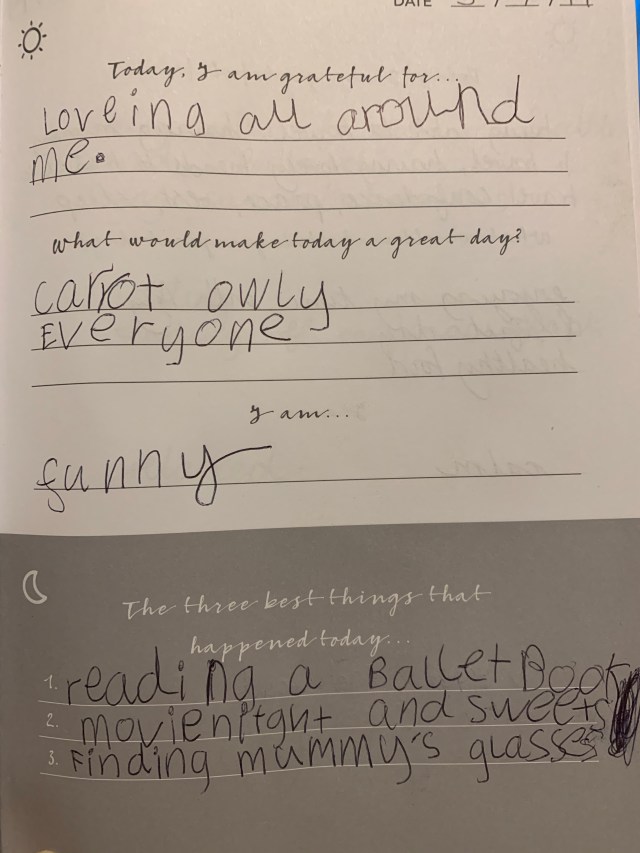 DATE
Today, I am grateful for...
Loveing all around
me.
what would make today a great day?
carrot owly
Everyone
I am...
funny
The three best things that
happened today...
1. reading a Ballet Book
2. movienight and sweets
3. Finding mummy's glasses